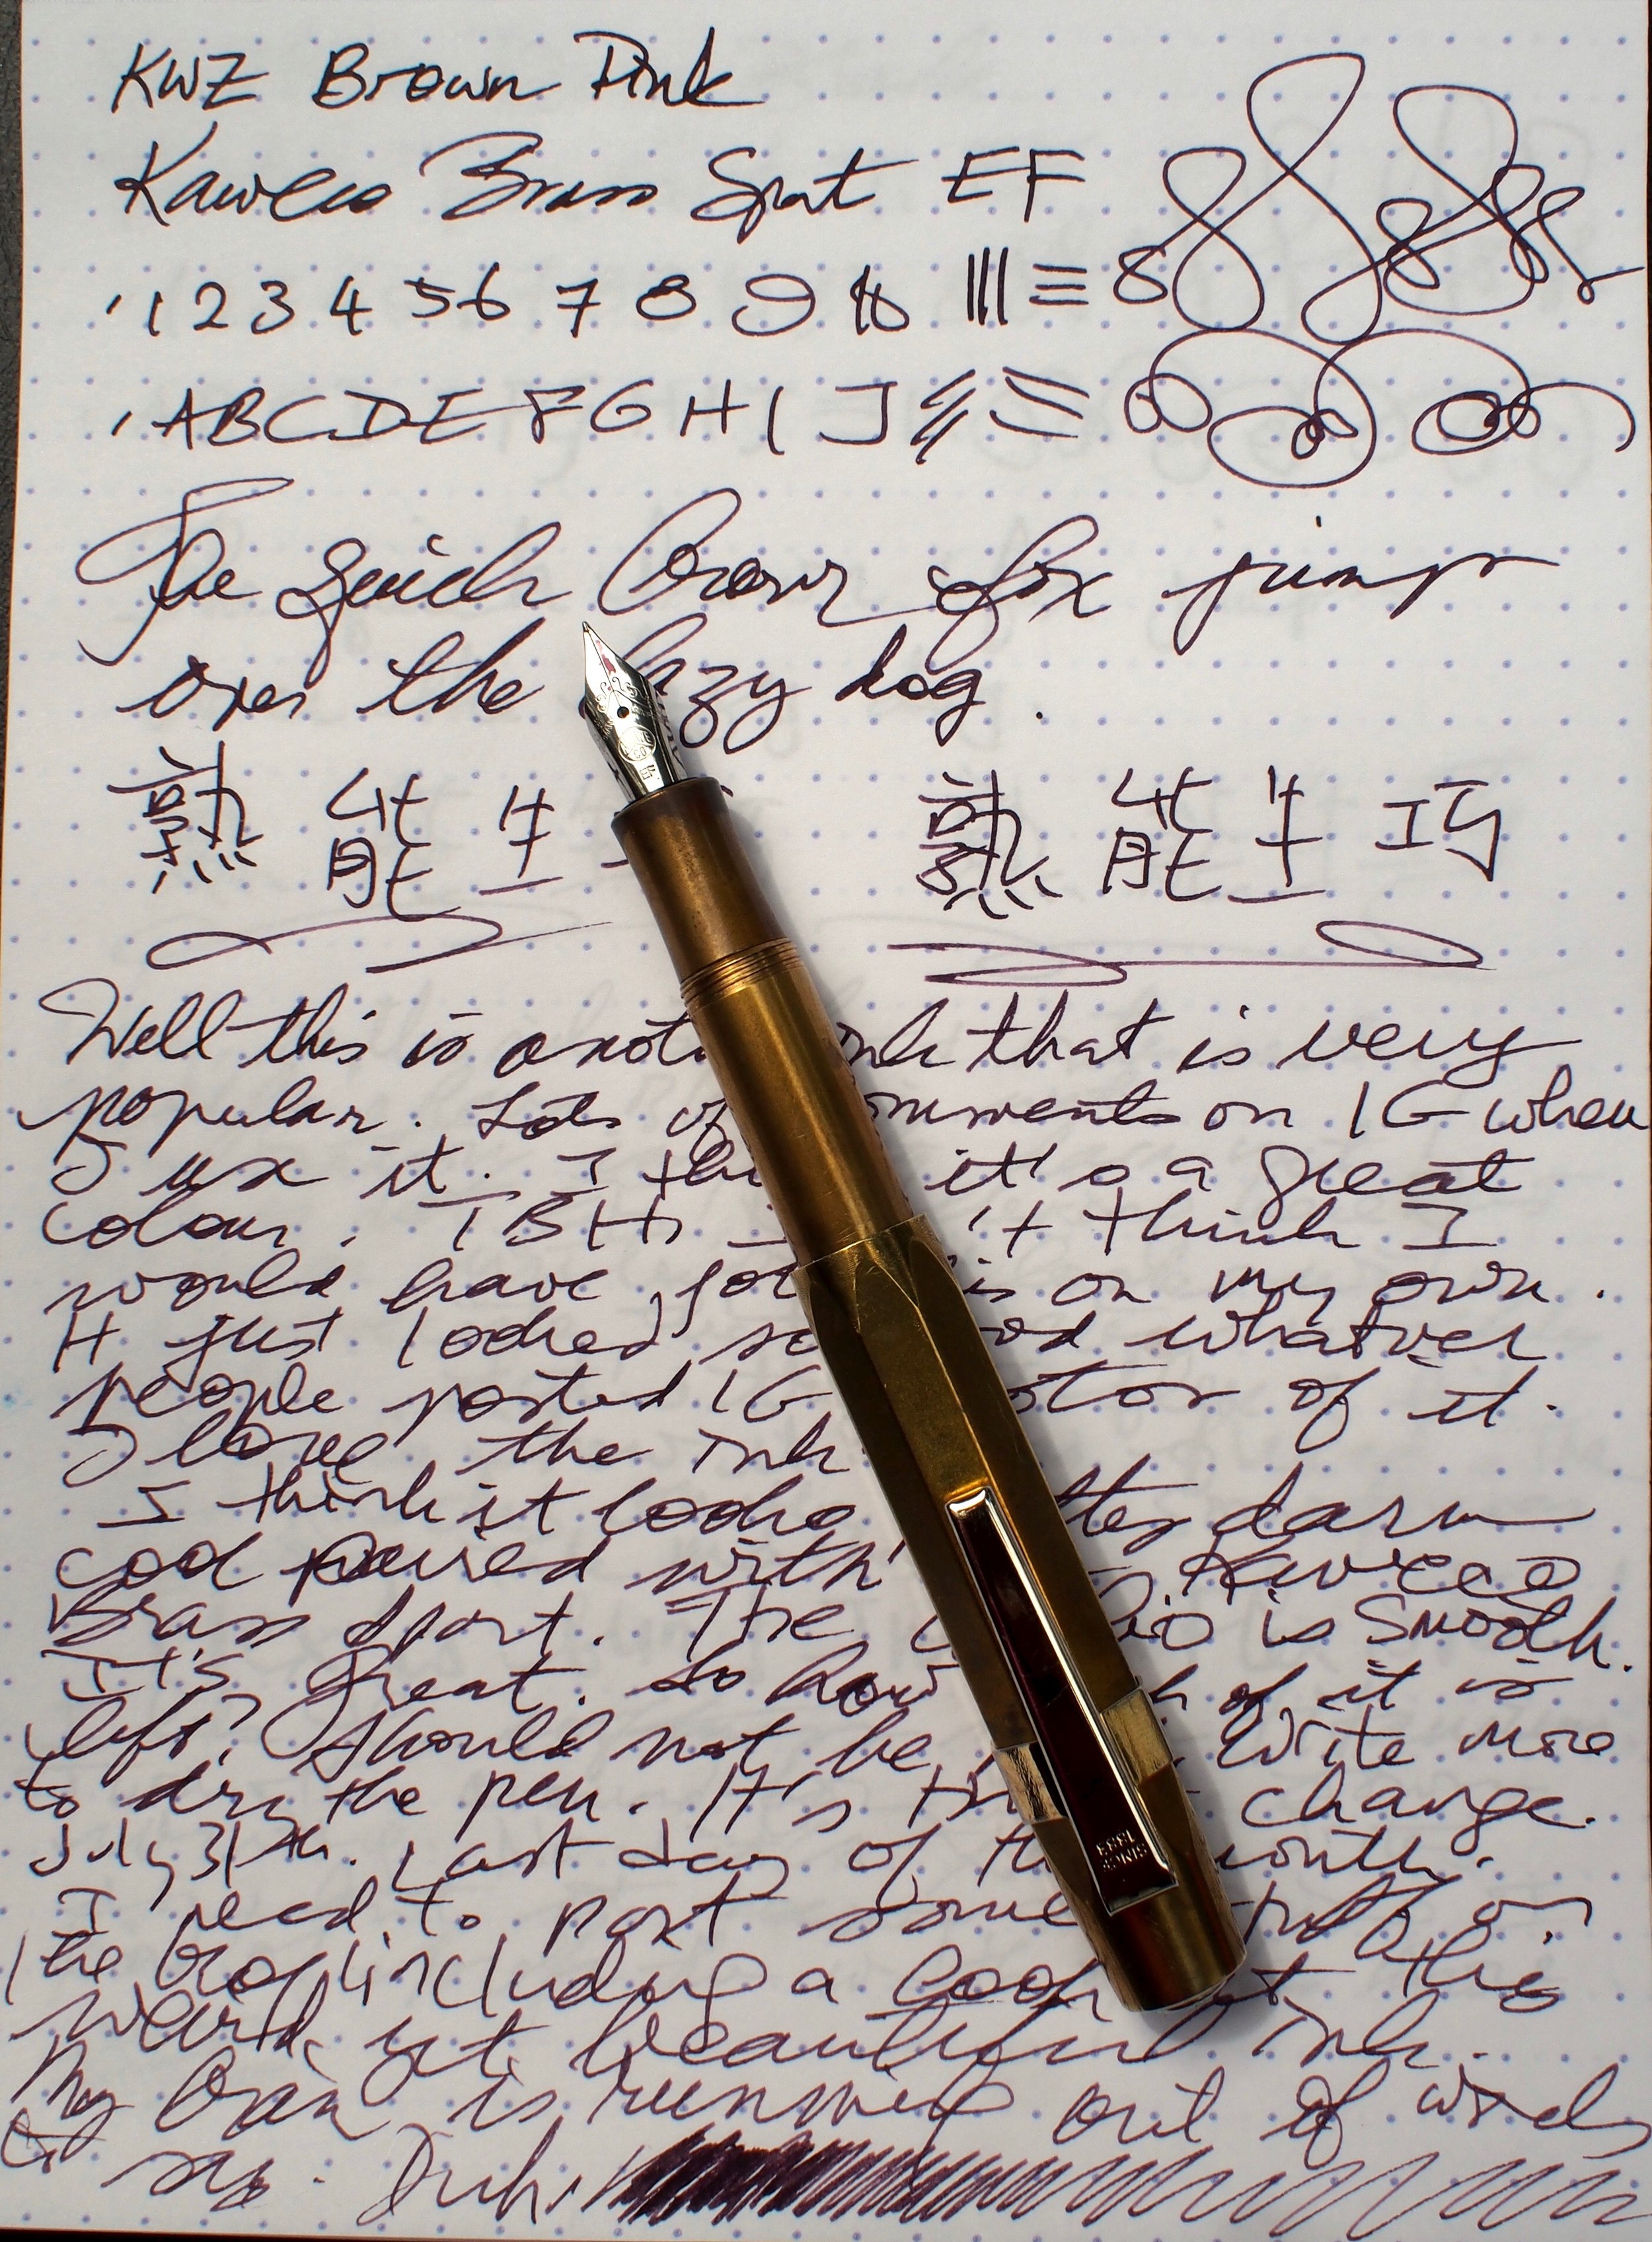 KWZ Brown Pink
Kaweco Brass Sport EF
1 2 3 4 5 6 7 8 9 10
A B C D E F G H I J
The quick brown fox jumps
over the lazy dog.
熟 能 生 熟 能 生 巧
Well this is anoth ink that is very
popular. Lots of mments on IG when
I use it. I thi it's a great
colour. TBH, I 't think I
would have got is on my own.
It just looked so od whatever
people posted IG of it.
I love the ink
I think it looks darn
cool paired with Kaweco
Brass Sport. The is smooth.
It's great. So how h of it is
left? Should not be Write more
to dry the pen. It's ti change.
July 31th. Last day of th month.
I need to post some stuff on
the blog including a look at this
weird yet beautiful ink.
My brain is running out of words
to say.
SINCE
1883